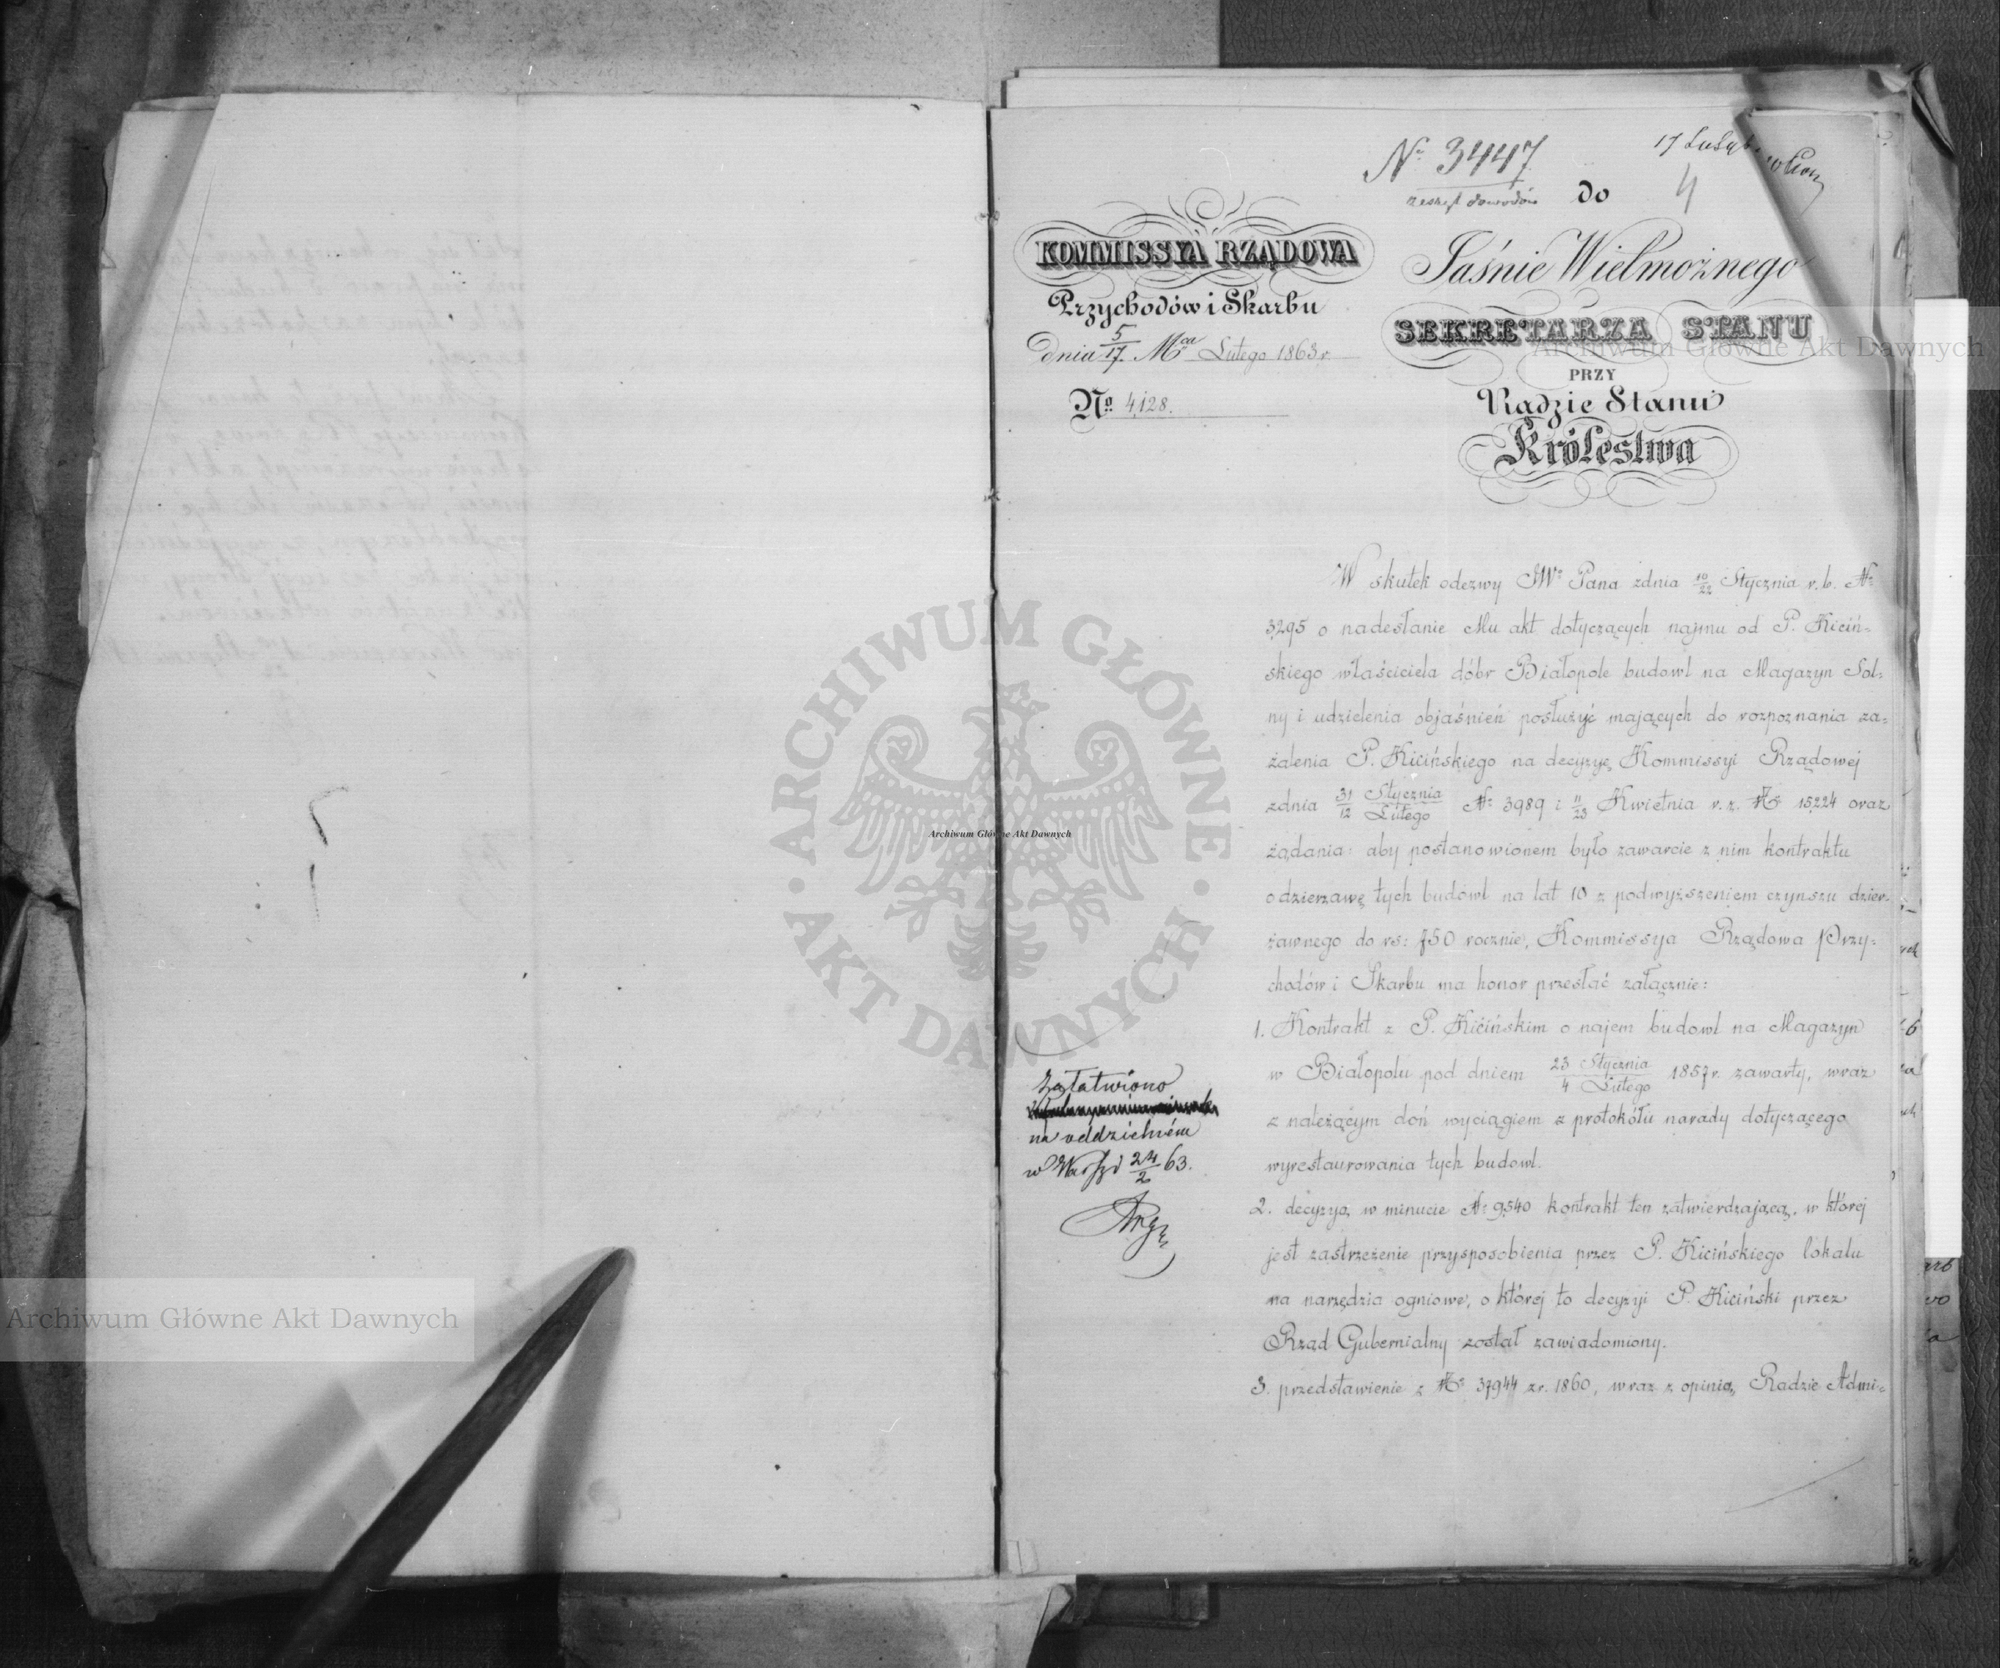 № 3447
zeszyt dowodów
17
4
do
KOMMISSYA RZĄDOWA
Przychodów i Skarbu
dnia 5/17 Mca Lutego 1863 r.
No. 4,128.
Jaśnie Wielmożnego
SEKRETARZA STANU
PRZY
Radzie Stanu
Królestwa
W skutek odezwy JWo Pana zdnia 10/22 Stycznia r. b. No
3,295 o nadesłanie Mu akt dotyczących najmu od P. Kiciń-
skiego właściciela dóbr Białopole budowl na Magazyn Sol-
ny i udzielenia objaśnień posłużyć mających do rozpoznania za-
żalenia P. Kicińskiego na decyzyę Kommissyi Rządowej
zdnia 31/12 Stycznia/Lutego No 3989 i 11/23 Kwietnia r. z. No 15,224 oraz
żądania: aby postanowionem było zawarcie z nim kontraktu
o dzierzawę tych budowl na lat 10 z podwyższeniem czynszu dzier-
żawnego do rs: 750 rocznie, Kommissya Rządowa Przy-
chodów i Skarbu ma honor przesłać załącznie:
1. Kontrakt z P. Kicińskim o najem budowl na Magazyn
w Białopolu pod dniem 23 Stycznia/4 Lutego 1857 r. zawarty, wraz
z należącym doń wyciągiem z protokółu narady dotyczącego
wyrestaurowania tych budowl.
2. decyzyę w minucie No 9,540 kontrakt ten zatwierdzającą, w której
jest zastrzeżenie przysposobienia przez P. Kicińskiego lokalu
na narzędzia ogniowe, o której to decyzyi P. Kiciński przez
Rząd Gubernialny został zawiadomiony.
3. przedstawienie z No 37,944 z r. 1860, wraz z opinią, Radzie Admi-
Załatwiono
na oddzielném
w Warsz d 24/2 63.
Archiwum Główne Akt Dawnych
ARCHIWUM GŁÓWNE
AKT DAWNYCH
Archiwum Główne Akt Dawnych
Archiwum Główne Akt Dawnych